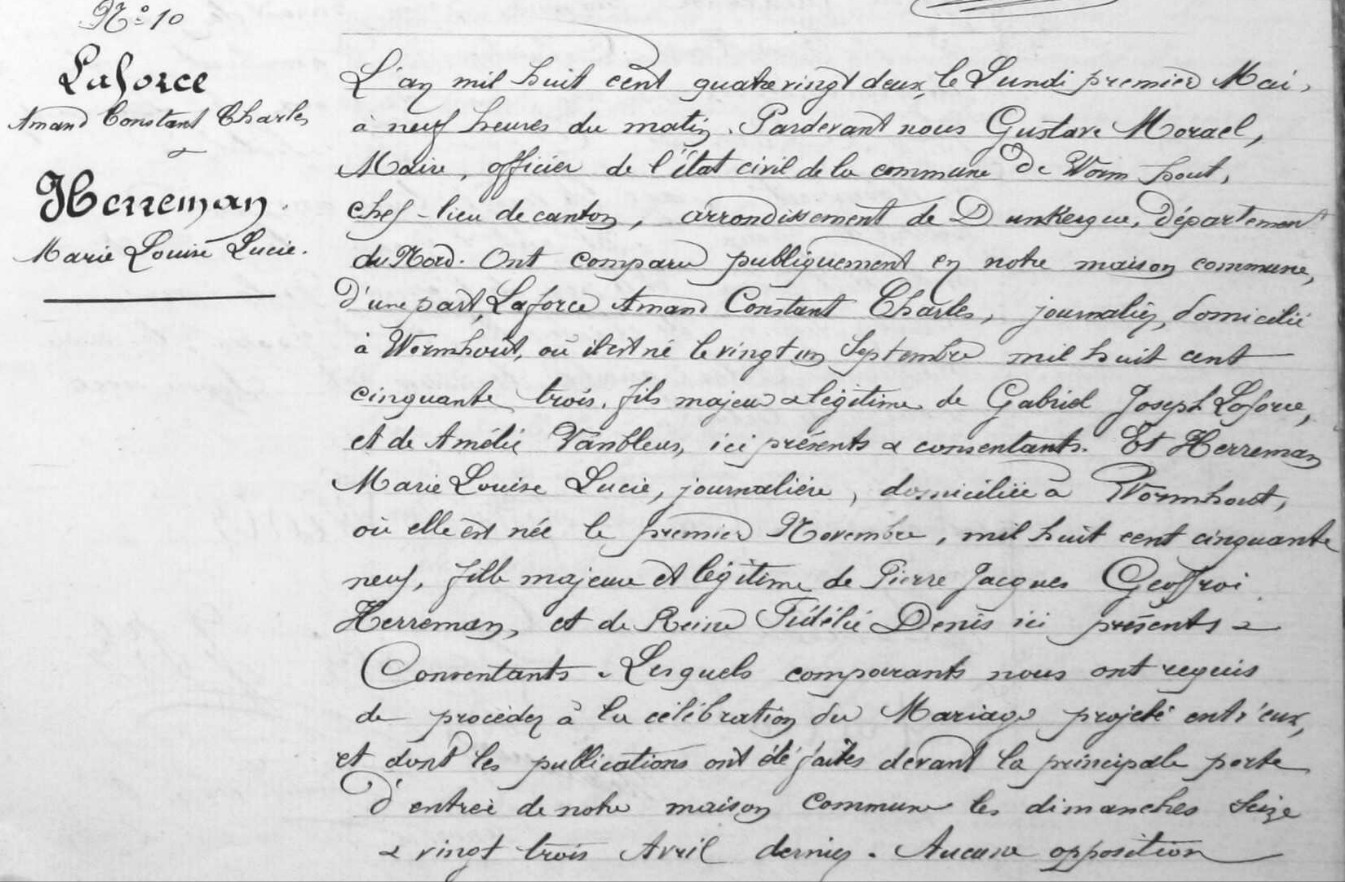 N° 10
Laforce
Amand Constant Charles
&
Herreman.
Marie Louise Lucie.
L'an mil huit cent quatrevingt deux, le Lundi premier Mai,
à neuf heures du matin. Pardevant nous Gustave Morael,
Maire, officier de l'état civil de la commune de Wormhout,
chef-lieu de canton, arrondissement de Dunkerque, département
du Nord. Ont comparu publiquement en notre maison commune,
d'une part, Laforce Amand Constant Charles, journalier, domicilié
à Wormhout, où il est né le vingt un Septembre mil huit cent
cinquante trois, fils majeur & légitime de Gabriel Joseph Laforce,
et de Amélie Vanbleus, ici présents & consentants. Et Herreman
Marie Louise Lucie, journalière, domiciliée à Wormhout,
où elle est née le premier Novembre, mil huit cent cinquante
neuf, fille majeure et légitime de Pierre Jacques Geoffroi
Herreman, et de Reine Fidélie Denis ici présents &
Consentants. Lesquels comparants nous ont requis
de procéder à la célébration du Mariage projeté entr'eux,
et dont les publications ont été faites devant la principale porte
d'entrée de notre maison commune les dimanches Seize
& vingt trois Avril dernier. Aucune opposition